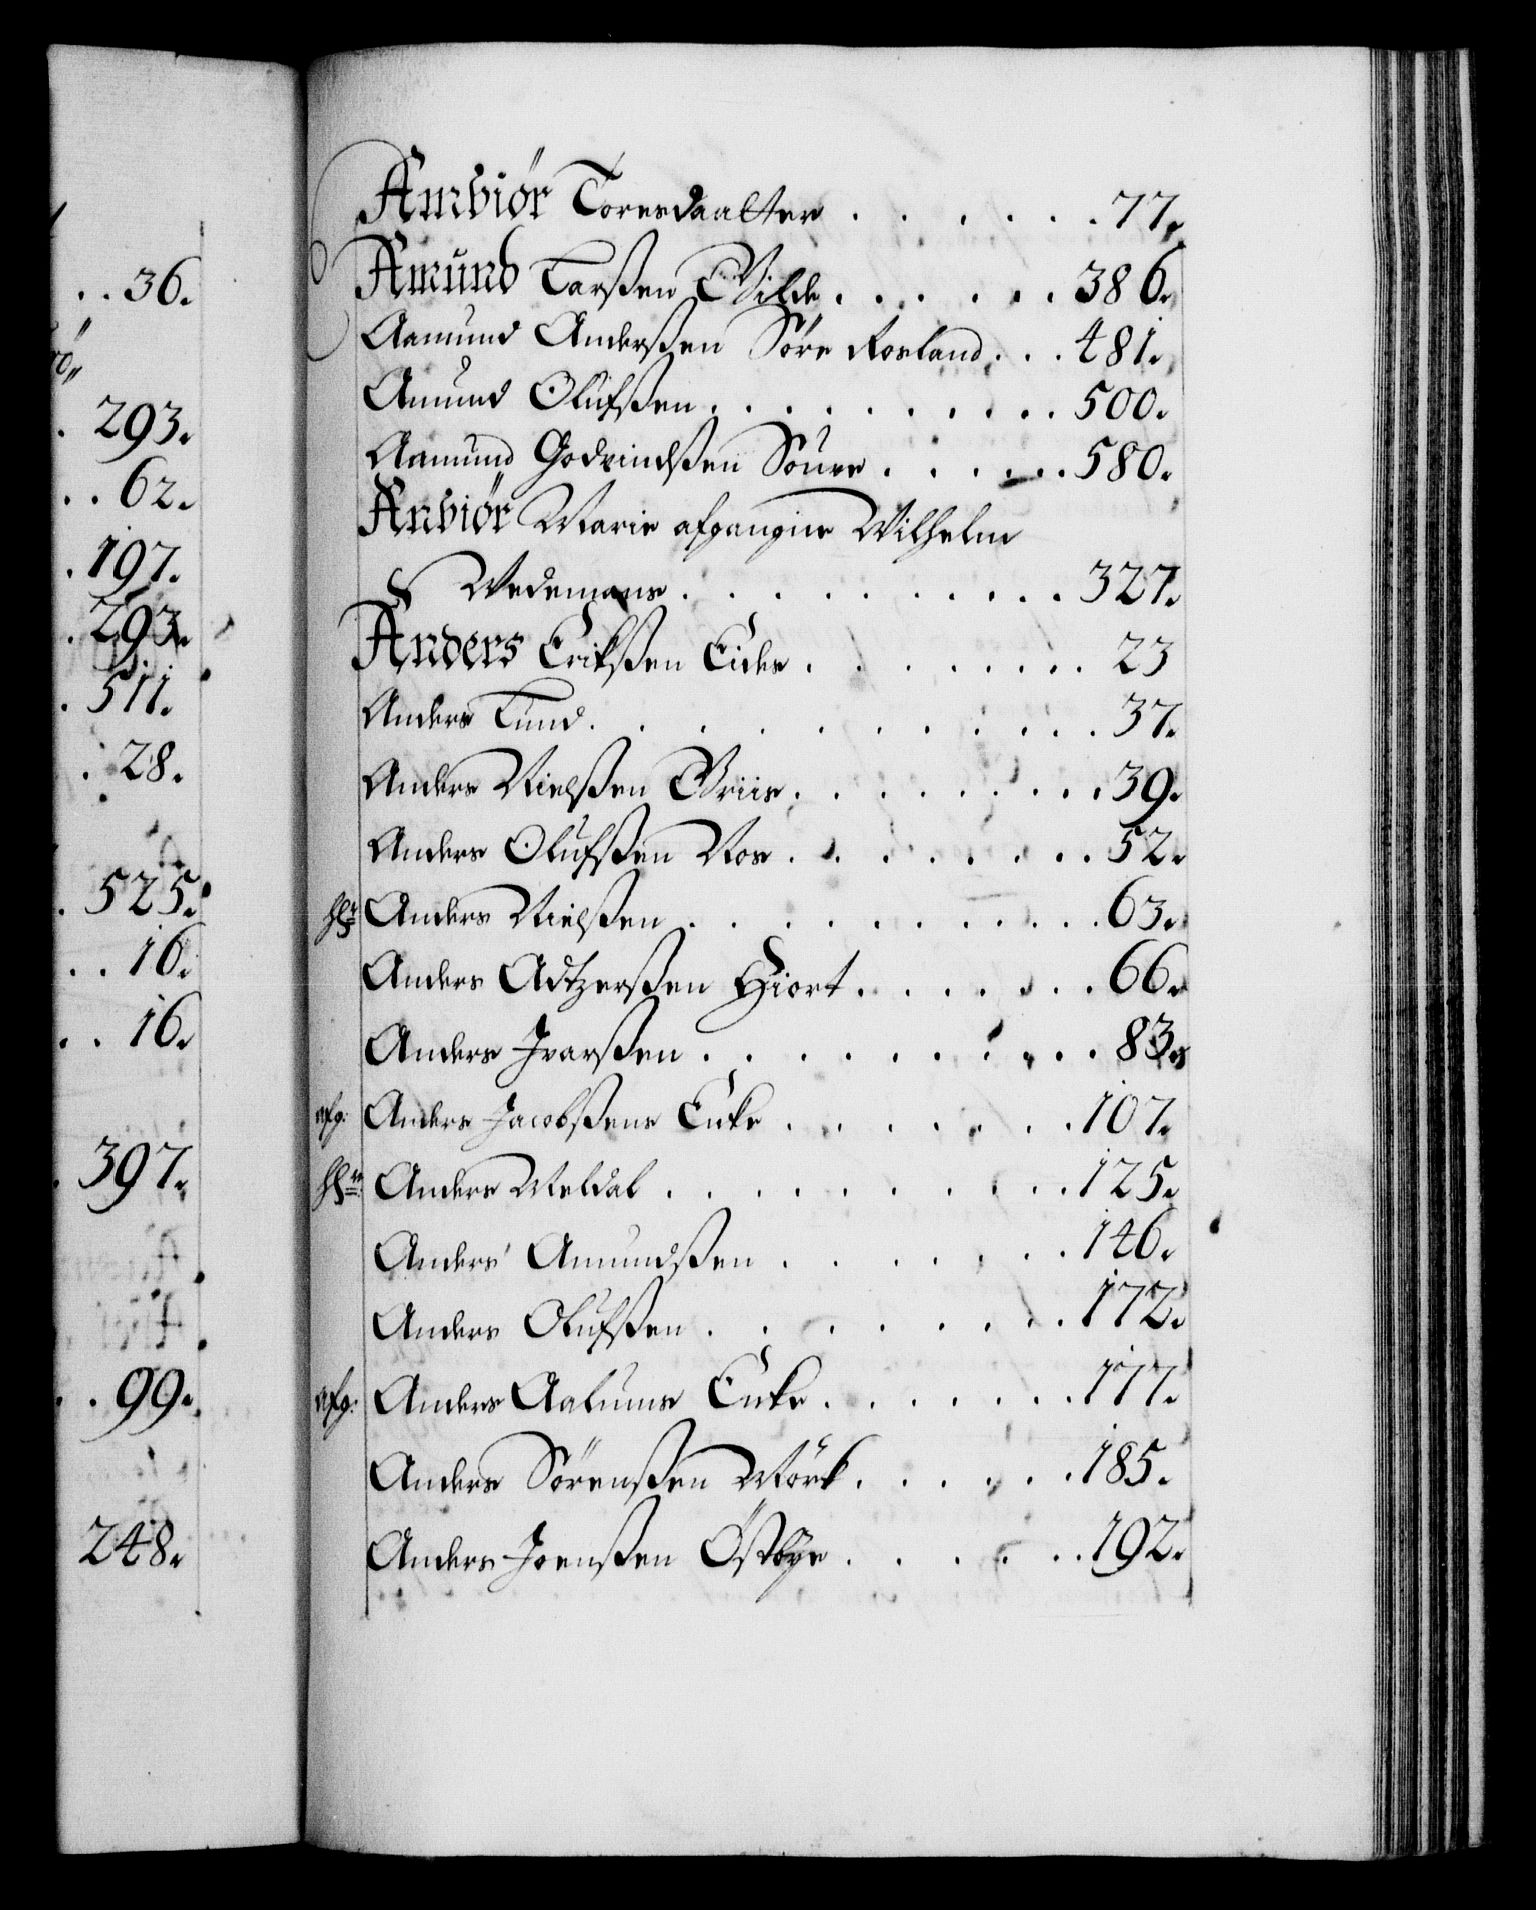 36.
293.
62.
197.
293.
511.
28.
525.
16.
16.
397.
99.
248.
Ambiør Toresdaatter . . . . . . 77.
Amund Larsen Gilde . . . . . . 386.
Aamund Andersßen Söre Rosland . . . 481.
Amund Olufsßen . . . . . . . . . 500.
Aamund Godvindsßen Soure . . . . . . 580.
Anbiør Marie afgangne Wilhelm
Wedemans . . . . . . . . . 327.
Anders Eriksßen Eide . . . . . . . 23
Anders Lund . . . . . . . . . . 37.
Anders Nielsßen Griis . . . . . . . . 39.
Anders Olufsßen Voss . . . . . . . . 52.
Hr Anders Nielsßen . . . . . . . . . 63.
Anders Adtzersßen Hiort . . . . . . . 66.
Anders Ivarsßen . . . . . . . . . 83.
afg: Anders Jacobsßens Enke . . . . . . . 107.
Hr Anders Meldal . . . . . . . . . 125.
Anders Amundsßen . . . . . . . 146.
Anders Olufsßen . . . . . . . . 172.
afg: Anders Aalums Enke . . . . . . . 177.
Anders Sörensßen Mörk . . . . . . 185.
Anders Joensßen Östbye . . . . . . 192.